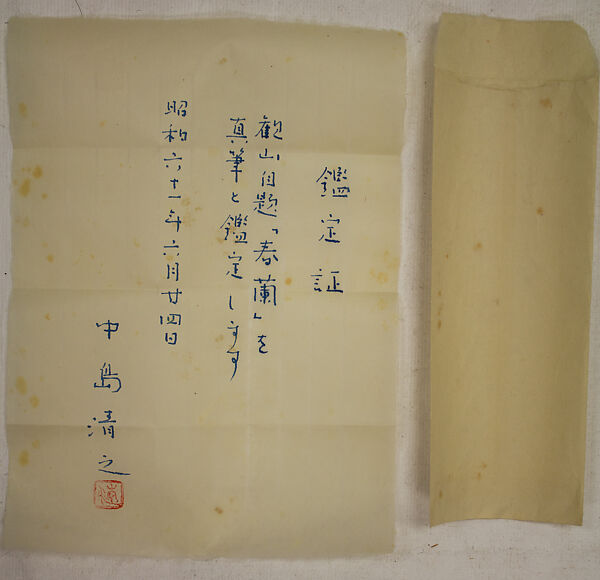 鑑定証
観山自題「春蘭」を
真筆と鑑定します
昭和六十一年六月廿四日
中島清之